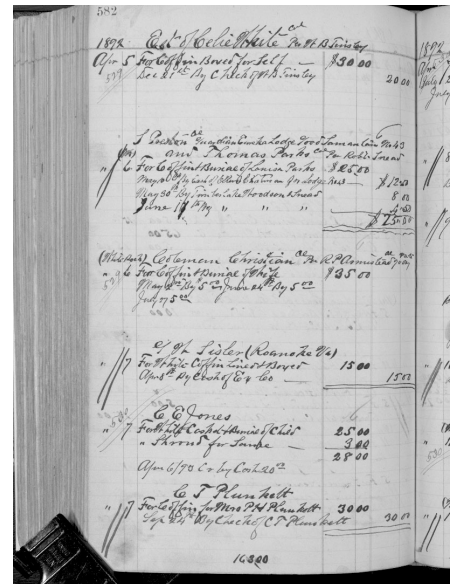 582
1892 Est of Celie White Col Per W B Tinsley
Apr 5 For Coffin Boxed for Self — $30 00
Dec 21st By Check of W B Tinsley 20 00
J Preston Col Guardian Eureka Lodge Good Samaritan No 43
and Thomas Parks Col Per Robt Snead
" 6 For Coffin & Burial of Parks $25 00
May 30th By Timberlake Thordson & Snead 8 00
June 17th By " " " 4 50
$25.00
Coleman Christian Col Per R P Armistead
" 6 For Coffin & Burial of Wife $35 00
May 2nd By 5 00 June 24th By 5 00
July 27 5 00
Sisler (Roanoke Va)
" 7 For White Coffin Lined & Boxed 15 00
Apr 8th By Cash of E & Co — 15 00
C E Jones
" 7 For White Casket & Burial of Child 25 00
" Shroud for Same — 3 00
28 00
Apr 6/93 Cr by Cash 20 00
C T Plunkett
" 7 For Coffin for Mrs P H Plunkett 30 00
Sep 24th By Check of C T Plunkett 30 00
163 00
1892